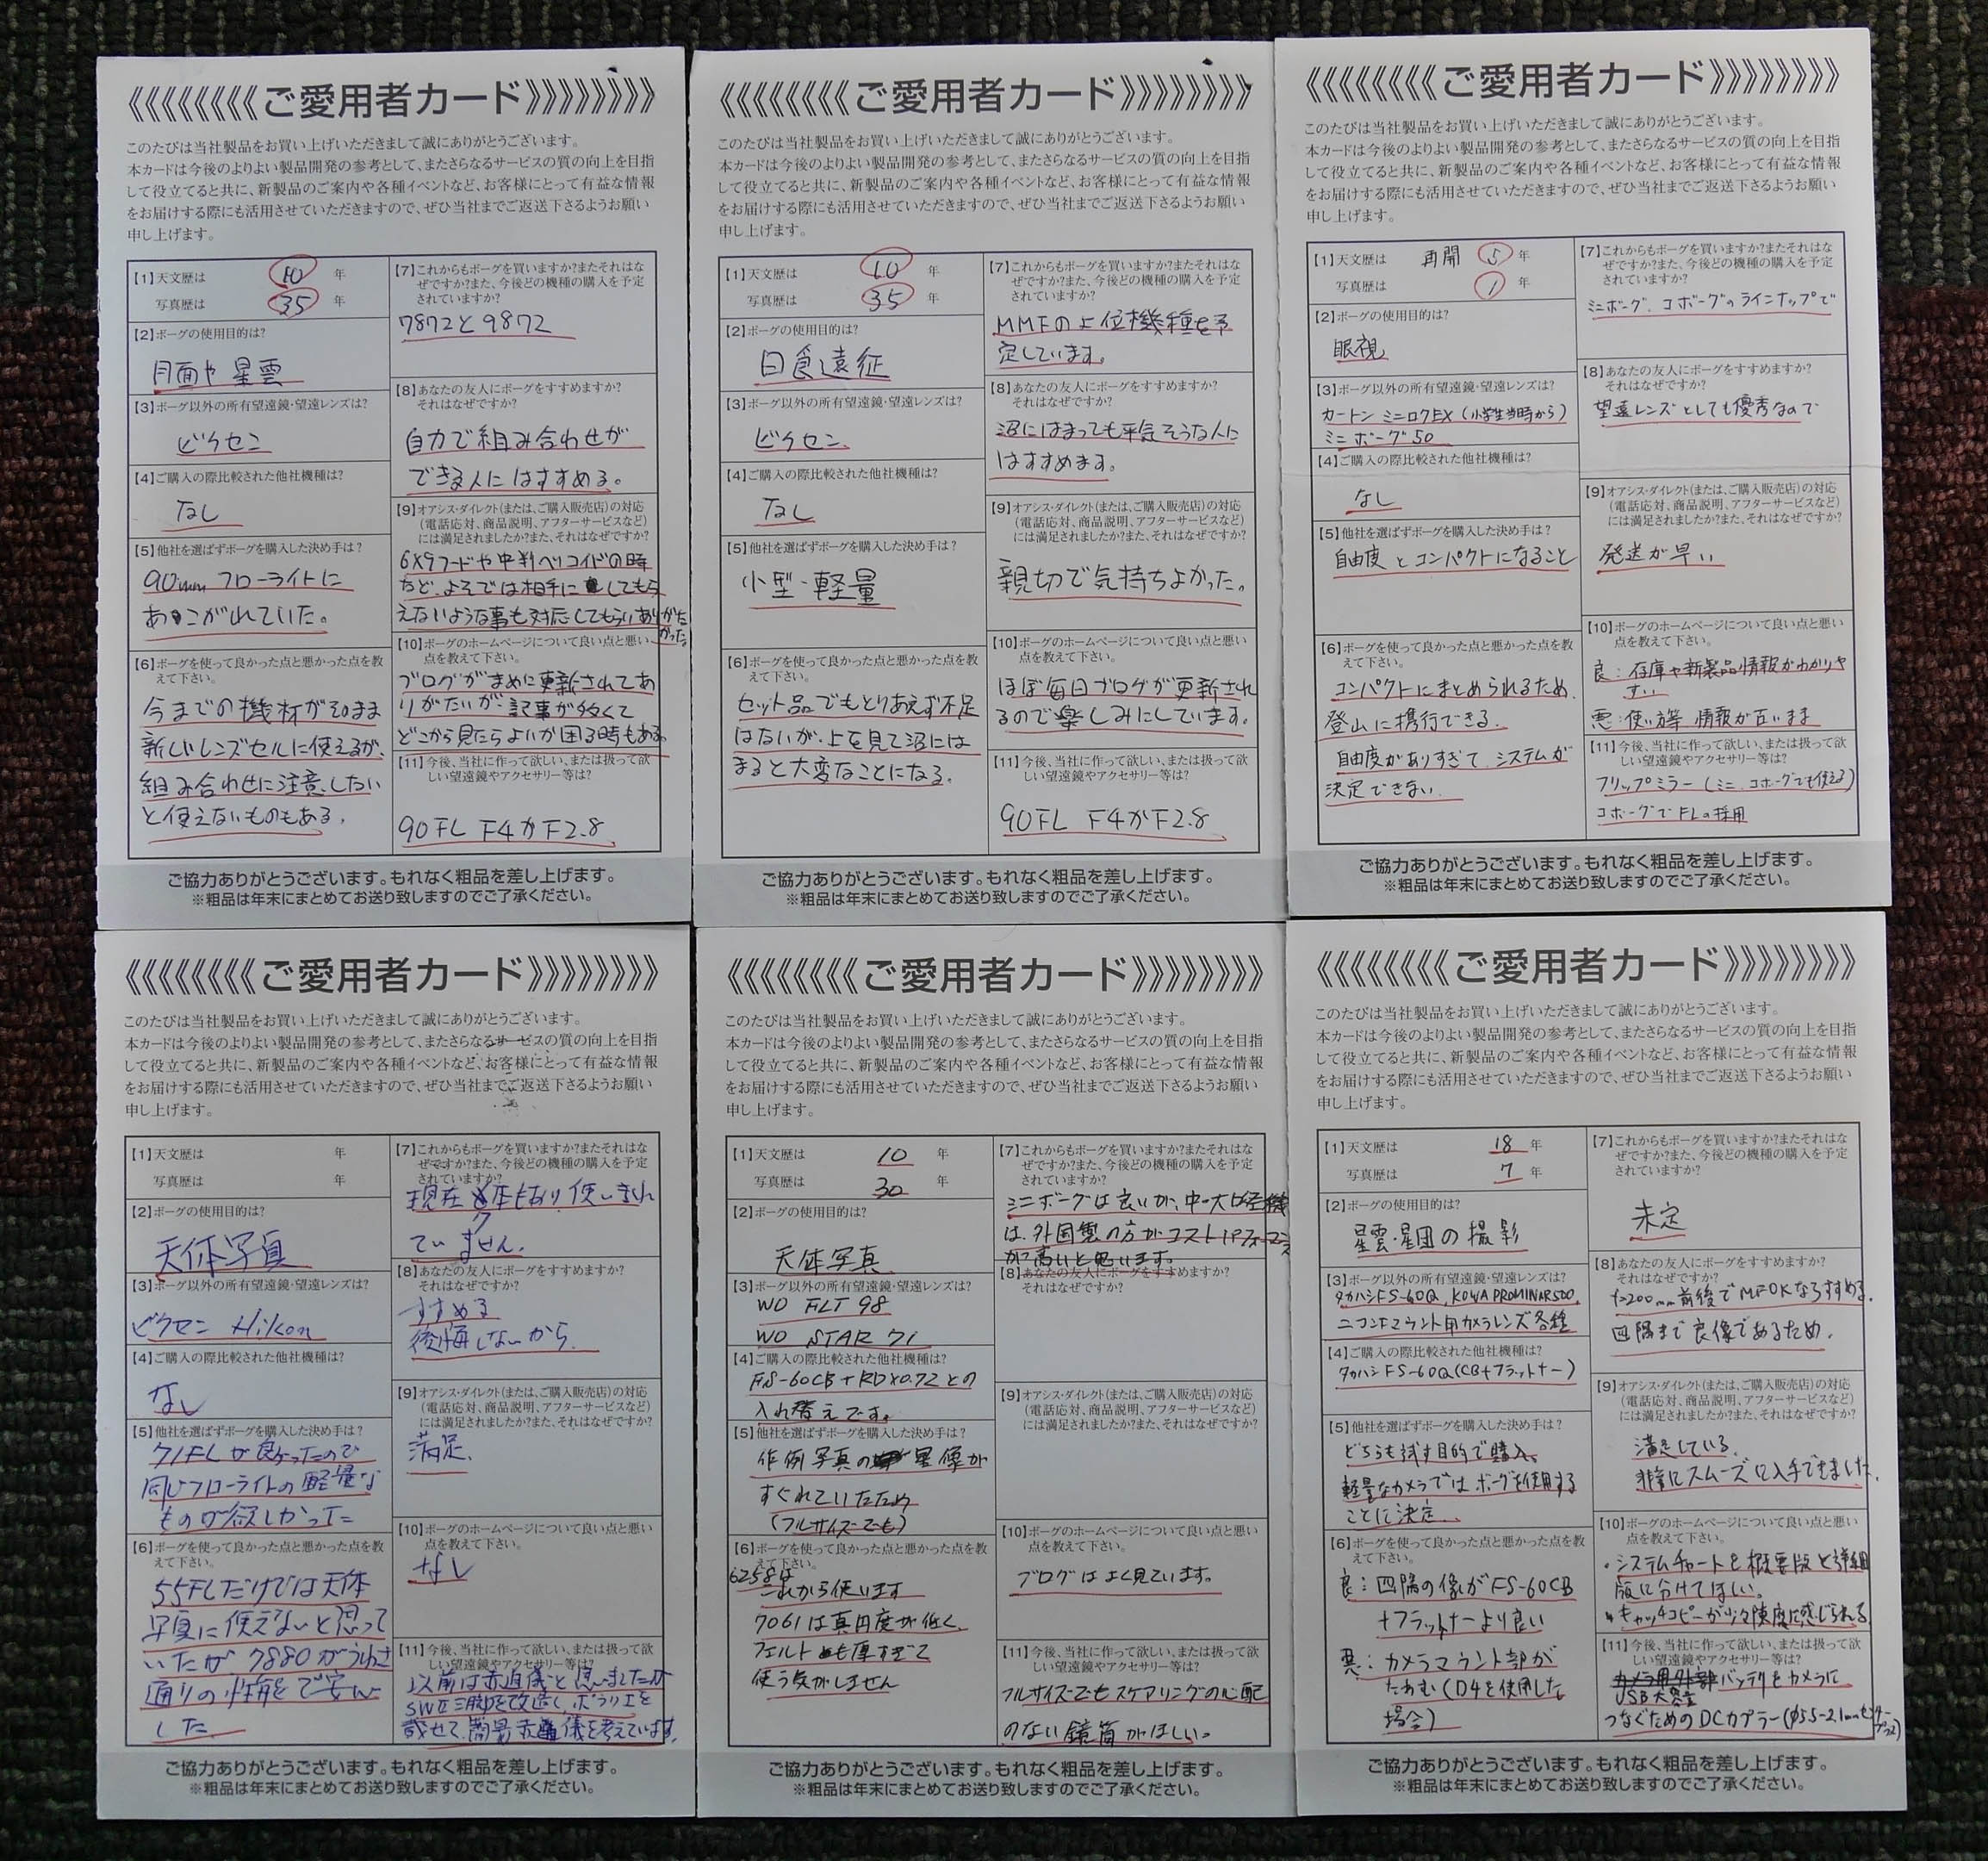 《《《《《《《《ご愛用者カード》》》》》》》》
このたびは当社製品をお買い上げいただきまして誠にありがとうございます。
本カードは今後のよりよい製品開発の参考として、またさらなるサービスの質の向上を目指
して役立てると共に、新製品のご案内や各種イベントなど、お客様にとって有益な情報
をお届けする際にも活用させていただきますので、ぜひ当社までご返送下さるようお願い
申し上げます。
【1】天文歴は 10 年
写真歴は 35 年
【2】ボーグの使用目的は?
月面や星雲
【3】ボーグ以外の所有望遠鏡・望遠レンズは?
ビクセン
【4】ご購入の際比較された他社機種は?
なし
【5】他社を選ばずボーグを購入した決め手は?
90mm フローライトに
あこがれていた。
【6】ボーグを使って良かった点と悪かった点を教
えて下さい。
今までの機材がそのまま
新しいレンズセルに使えるが、
組み合わせに注意しない
と使えないものもある。
【7】これからもボーグを買いますか?またそれはな
ぜですか?また、今後どの機種の購入を予定
されていますか?
7872と9872
【8】あなたの友人にボーグをすすめますか?
それはなぜですか?
自力で組み合わせが
できる人にはすすめる。
【9】オアシス・ダイレクト(または、ご購入販売店)の対応
(電話応対、商品説明、アフターサービスなど)
には満足されましたか?また、それはなぜですか?
6×9フードや中判ヘリコイドの時
など、よそでは相手にしてもら
えないような事も対応してもらいありがた
かった
【10】ボーグのホームページについて良い点と悪い
点を教えて下さい。
ブログがまめに更新されてあ
りがたいが、記事が多くて
どこから見たらよいか困る時もある。
【11】今後、当社に作って欲しい、または扱って欲
しい望遠鏡やアクセサリー等は?
90FL F4かF2.8
ご協力ありがとうございます。もれなく粗品を差し上げます。
※粗品は年末にまとめてお送り致しますのでご了承ください。
《《《《《《《《ご愛用者カード》》》》》》》》
このたびは当社製品をお買い上げいただきまして誠にありがとうございます。
本カードは今後のよりよい製品開発の参考として、またさらなるサービスの質の向上を目指
して役立てると共に、新製品のご案内や各種イベントなど、お客様にとって有益な情報
をお届けする際にも活用させていただきますので、ぜひ当社までご返送下さるようお願い
申し上げます。
【1】天文歴は 10 年
写真歴は 35 年
【2】ボーグの使用目的は?
日食遠征
【3】ボーグ以外の所有望遠鏡・望遠レンズは?
ビクセン
【4】ご購入の際比較された他社機種は?
なし
【5】他社を選ばずボーグを購入した決め手は?
小型・軽量
【6】ボーグを使って良かった点と悪かった点を教
えて下さい。
セット品でもとりあえず不足
はないが、上を見て沼には
まると大変なことになる。
【7】これからもボーグを買いますか?またそれはな
ぜですか?また、今後どの機種の購入を予定
されていますか?
MMFの上位機種を予
定しています。
【8】あなたの友人にボーグをすすめますか?
それはなぜですか?
沼にはまっても平気そうな人に
はすすめます。
【9】オアシス・ダイレクト(または、ご購入販売店)の対応
(電話応対、商品説明、アフターサービスなど)
には満足されましたか?また、それはなぜですか?
親切で気持ちよかった。
【10】ボーグのホームページについて良い点と悪い
点を教えて下さい。
ほぼ毎日ブログが更新され
るので楽しみにしています。
【11】今後、当社に作って欲しい、または扱って欲
しい望遠鏡やアクセサリー等は?
90FL F4かF2.8
ご協力ありがとうございます。もれなく粗品を差し上げます。
※粗品は年末にまとめてお送り致しますのでご了承ください。
《《《《《《《《ご愛用者カード》》》》》》》》
このたびは当社製品をお買い上げいただきまして誠にありがとうございます。
本カードは今後のよりよい製品開発の参考として、またさらなるサービスの質の向上を目指
して役立てると共に、新製品のご案内や各種イベントなど、お客様にとって有益な情報
をお届けする際にも活用させていただきますので、ぜひ当社までご返送下さるようお願い
申し上げます。
【1】天文歴は 再開 5 年
写真歴は 1 年
【2】ボーグの使用目的は?
眼視
【3】ボーグ以外の所有望遠鏡・望遠レンズは?
カートン ミニロクEX(小学生当時から)
ミニボーグ50
【4】ご購入の際比較された他社機種は?
なし
【5】他社を選ばずボーグを購入した決め手は?
自由度とコンパクトになること
【6】ボーグを使って良かった点と悪かった点を教
えて下さい。
コンパクトにまとめられるため、
登山に携行できる。
自由度がありすぎて、システムが
決定できない。
【7】これからもボーグを買いますか?またそれはな
ぜですか?また、今後どの機種の購入を予定
されていますか?
ミニボーグ、コボーグのラインナップで
【8】あなたの友人にボーグをすすめますか?
それはなぜですか?
望遠レンズとしても優秀なので
【9】オアシス・ダイレクト(または、ご購入販売店)の対応
(電話応対、商品説明、アフターサービスなど)
には満足されましたか?また、それはなぜですか?
発送が早い
【10】ボーグのホームページについて良い点と悪い
点を教えて下さい。
良:在庫や新製品情報がわかりや
すい
悪:使い方等 情報が古いまま
【11】今後、当社に作って欲しい、または扱って欲
しい望遠鏡やアクセサリー等は?
フリップミラー(ミニ、コボーグでも使える)
コボーグでFLの採用
ご協力ありがとうございます。もれなく粗品を差し上げます。
※粗品は年末にまとめてお送り致しますのでご了承ください。
《《《《《《《《ご愛用者カード》》》》》》》》
このたびは当社製品をお買い上げいただきまして誠にありがとうございます。
本カードは今後のよりよい製品開発の参考として、またさらなるサービスの質の向上を目指
して役立てると共に、新製品のご案内や各種イベントなど、お客様にとって有益な情報
をお届けする際にも活用させていただきますので、ぜひ当社までご返送下さるようお願い
申し上げます。
【1】天文歴は 年
写真歴は 年
【2】ボーグの使用目的は?
天体写真
【3】ボーグ以外の所有望遠鏡・望遠レンズは?
ビクセン Nikon
【4】ご購入の際比較された他社機種は?
なし
【5】他社を選ばずボーグを購入した決め手は?
71FLが良かったので
同じフローライトの軽量な
ものが欲しかった
【6】ボーグを使って良かった点と悪かった点を教
えて下さい。
55FLだけでは天体
写真に使えないと思って
いたが7880がうわさ
通りの性能で安心
した
【7】これからもボーグを買いますか?またそれはな
ぜですか?また、今後どの機種の購入を予定
されていますか?
現在 7本もあり使いきれ
ていません。
【8】あなたの友人にボーグをすすめますか?
それはなぜですか?
すすめる
後悔しないから
【9】オアシス・ダイレクト(または、ご購入販売店)の対応
(電話応対、商品説明、アフターサービスなど)
には満足されましたか?また、それはなぜですか?
満足
【10】ボーグのホームページについて良い点と悪い
点を教えて下さい。
なし
【11】今後、当社に作って欲しい、または扱って欲
しい望遠鏡やアクセサリー等は?
以前は赤道儀と思いましたが
SWⅡ三脚を改造し、ポラリエを
載せて、簡易赤道儀を考えています。
ご協力ありがとうございます。もれなく粗品を差し上げます。
※粗品は年末にまとめてお送り致しますのでご了承ください。
《《《《《《《《ご愛用者カード》》》》》》》》
このたびは当社製品をお買い上げいただきまして誠にありがとうございます。
本カードは今後のよりよい製品開発の参考として、またさらなるサービスの質の向上を目指
して役立てると共に、新製品のご案内や各種イベントなど、お客様にとって有益な情報
をお届けする際にも活用させていただきますので、ぜひ当社までご返送下さるようお願い
申し上げます。
【1】天文歴は 10 年
写真歴は 30 年
【2】ボーグの使用目的は?
天体写真
【3】ボーグ以外の所有望遠鏡・望遠レンズは?
WO FLT 98
WO STAR 71
【4】ご購入の際比較された他社機種は?
FS-60CB+RD×0.72との
入れ替えです。
【5】他社を選ばずボーグを購入した決め手は?
作例写真の星像が
すぐれていたため
(フルサイズでも)
【6】ボーグを使って良かった点と悪かった点を教
えて下さい。
6258は
これから使います
7061は真円度が低く、
フェルトも厚すぎて
使う気がしません
【7】これからもボーグを買いますか?またそれはな
ぜですか?また、今後どの機種の購入を予定
されていますか?
ミニボーグは良いが、中・大口径機
は、外国製の方がコストパフォーマンス
が高いと思います。
【8】あなたの友人にボーグをすすめますか?
それはなぜですか?
【9】オアシス・ダイレクト(または、ご購入販売店)の対応
(電話応対、商品説明、アフターサービスなど)
には満足されましたか?また、それはなぜですか?
【10】ボーグのホームページについて良い点と悪い
点を教えて下さい。
ブログはよく見ています。
【11】今後、当社に作って欲しい、または扱って欲
しい望遠鏡やアクセサリー等は?
フルサイズでもスケアリングの心配
のない鏡筒がほしい。
ご協力ありがとうございます。もれなく粗品を差し上げます。
※粗品は年末にまとめてお送り致しますのでご了承ください。
《《《《《《《《ご愛用者カード》》》》》》》》
このたびは当社製品をお買い上げいただきまして誠にありがとうございます。
本カードは今後のよりよい製品開発の参考として、またさらなるサービスの質の向上を目指
して役立てると共に、新製品のご案内や各種イベントなど、お客様にとって有益な情報
をお届けする際にも活用させていただきますので、ぜひ当社までご返送下さるようお願い
申し上げます。
【1】天文歴は 18 年
写真歴は 7 年
【2】ボーグの使用目的は?
星雲・星団の撮影
【3】ボーグ以外の所有望遠鏡・望遠レンズは?
タカハシFS-60Q、KOWA PROMINAR500、
ニコンFマウント用カメラレンズ各種
【4】ご購入の際比較された他社機種は?
タカハシFS-60Q(CB+フラットナー)
【5】他社を選ばずボーグを購入した決め手は?
どちらも試す目的で購入。
軽量なカメラではボーグを使用する
ことに決定。
【6】ボーグを使って良かった点と悪かった点を教
えて下さい。
良:四隅の像がFS-60CB
+フラットナーより良い
悪:カメラマウント部が
たわむ(D4を使用した
場合)
【7】これからもボーグを買いますか?またそれはな
ぜですか?また、今後どの機種の購入を予定
されていますか?
未定
【8】あなたの友人にボーグをすすめますか?
それはなぜですか?
f=200mm前後でMFOKならすすめる。
四隅まで良像であるため。
【9】オアシス・ダイレクト(または、ご購入販売店)の対応
(電話応対、商品説明、アフターサービスなど)
には満足されましたか?また、それはなぜですか?
満足している。
非常にスムーズに入手できました。
【10】ボーグのホームページについて良い点と悪い
点を教えて下さい。
・システムチャートを概要版と詳細
版に分けてほしい。
・キャッチコピーが少々陳腐に感じられる
【11】今後、当社に作って欲しい、または扱って欲
しい望遠鏡やアクセサリー等は?
USB大容量バッテリをカメラに
つなぐためのDCカプラー(φ5.5-2.1mmセンター
プラス)
ご協力ありがとうございます。もれなく粗品を差し上げます。
※粗品は年末にまとめてお送り致しますのでご了承ください。